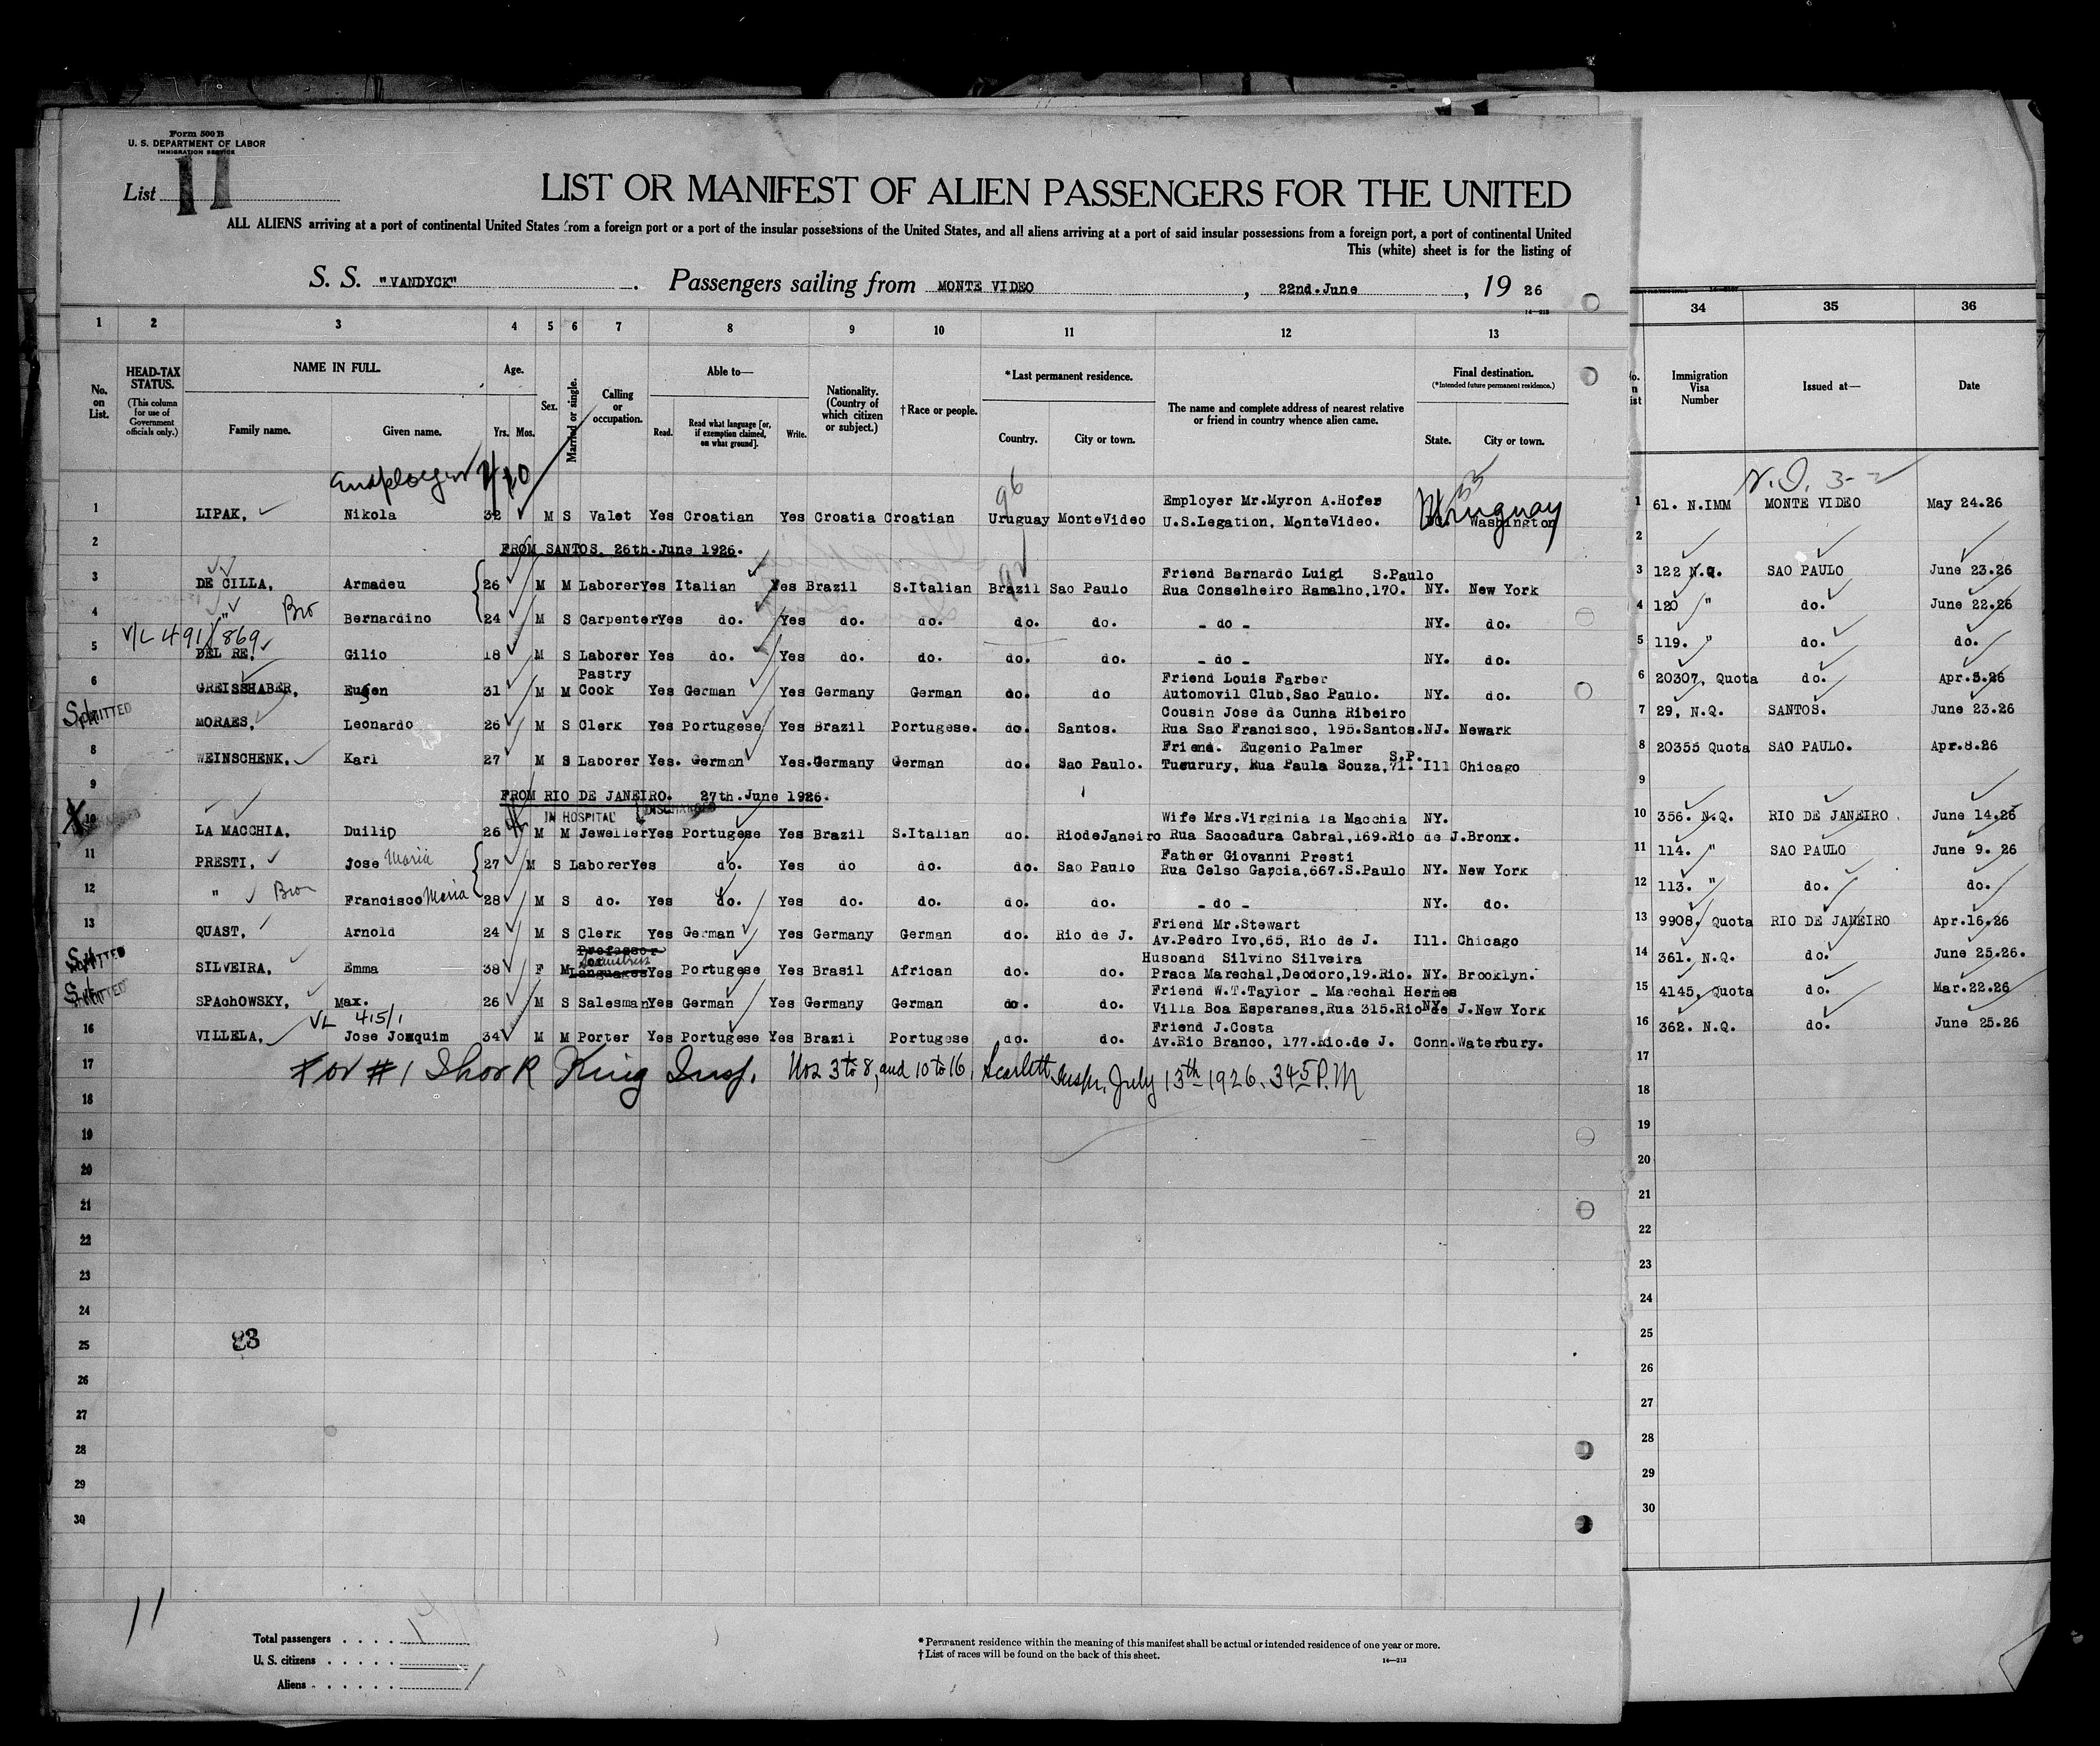 Form 500 B
U. S. DEPARTMENT OF LABOR
IMMIGRATION SERVICE
List 11
LIST OR MANIFEST OF ALIEN PASSENGERS FOR THE UNITED
ALL ALIENS arriving at a port of continental United States from a foreign port or a port of the insular possessions of the United States, and all aliens arriving at a port of said insular possessions from a foreign port, a port of continental United
This (white) sheet is for the listing of
S. S. "VANDYCK" . Passengers sailing from MONTE VIDEO , 22nd.June , 19 26
14—213
1 2 3 4 5 6 7 8 9 10 11 12 13 34 35 36
No. on List.
HEAD-TAX STATUS. (This column for use of Government officials only.)
NAME IN FULL.
Family name. Given name.
Age.
Yrs. Mos.
Sex.
Married or single.
Calling or occupation.
Able to—
Read. Read what language [or, if exemption claimed, on what ground]. Write.
Nationality. (Country of which citizen or subject.)
†Race or people.
*Last permanent residence.
Country. City or town.
The name and complete address of nearest relative or friend in country whence alien came.
Final destination.
(*Intended future permanent residence.)
State. City or town.
Immigration Visa Number
Issued at—
Date
N.I. 3-2
96
Uruguay
1 LIPAK, Nikola 32 M S Valet Yes Croatian Yes Croatia Croatian Uruguay MonteVideo Employer Mr.Myron A.Hofer
U.S.Legation, MonteVideo. Washington 1 61. N.IMM MONTE VIDEO May 24.26
2 FROM SANTOS. 26th.June 1926. 2
3 DE CILLA, Armadeu 26 M M Laborer Yes Italian Yes Brazil S.Italian Brazil Sao Paulo Friend Barnardo Luigi S.Paulo
Rua Conselheiro Ramalho,170. NY. New York 3 122 N.Q. SAO PAULO June 23.26
4 " Bro Bernardino 24 M S Carpenter Yes do. Yes do. do. do. do. - do - NY. do. 4 120 " do. June 22.26
V/L 491/869
5 DEL RE, Gilio 18 M S Laborer Yes do. Yes do. do. do. do. - do - NY. do. 5 119. " do. do.
6 GREISSHABER, Eugen 31 M M Pastry Cook Yes German Yes Germany German do. do Friend Louis Farber
Automovil Club,Sao Paulo. NY. do. 6 20307, Quota do. Apr.5.26
ADMITTED
7 MORAES, Leonardo 26 M S Clerk Yes Portugese Yes Brazil Portugese. do. Santos. Cousin Jose da Cunha Ribeiro
Rua Sao Francisco, 195.Santos. NJ. Newark 7 29, N.Q. SANTOS. June 23.26
8 WEINSCHENK, Karl 27 M S Laborer Yes. German Yes. Germany German do. Sao Paulo. Friend. Eugenio Palmer
Tucurury, Rua Paula Souza,71. S.P. Ill Chicago 8 20355 Quota SAO PAULO. Apr.8.26
9 FROM RIO DE JANEIRO. 27th.June 1926. 9
IN HOSPITAL DISCHARGED
10 LA MACCHIA, Duilip 26 M M Jeweller Yes Portugese Yes Brazil S.Italian do. RiodeJaneiro Wife Mrs.Virginia la Macchia NY.
Rua Saccadura Cabral,169.Rio de J. Bronx. 10 356. N.Q. RIO DE JANEIRO. June 14.26
11 PRESTI, Jose Maria 27 M S Laborer Yes do. Yes do do. do. Sao Paulo Father Giovanni Presti
Rua Celso Garcia,667.S.Paulo NY. New York 11 114. " SAO PAULO June 9. 26
12 " Bro Francisco Maria 28 M S do. Yes do. Yes do. do. do. do. - do - NY. do. 12 113. " do. do.
13 QUAST, Arnold 24 M S Clerk Yes German Yes Germany German do. Rio de J. Friend Mr.Stewart
Av.Pedro Ivo,65, Rio de J. Ill. Chicago 13 9908. Quota RIO DE JANEIRO Apr.16.26
ADMITTED
14 SILVEIRA, Emma 38 F M Professor Languages Yes Portugese Yes Brasil African do. do. Husband Silvino Silveira
Praca Marechal,Deodoro,19.Rio. NY. Brooklyn. 14 361. N.Q. do. June 25.26.
ADMITTED
15 SPAchOWSKY, Max. 26 M S Salesman Yes German Yes Germany German do. do. Friend W.T.Taylor - Marechal Hermes
Villa Boa Esperanes,Rua 315.Rio de J. NY. New York 15 4145, Quota do. Mar.22.26
VL 415/1
16 VILLELA, Jose Joaquim 34 M M Porter Yes Portugese Yes Brazil Portugese do. do. Friend J.Costa
Av.Rio Branco, 177.Rio.de J. Conn. Waterbury. 16 362. N.Q. do. June 25.26
17 For #1 Shor R King Insp. Nos 3 to 8, and 10 to 16, Scarlett Inspr. July 13th 1926. 345 P.M 17
18 18
19 19
20 20
21 21
22 22
23 23
24 24
83
25 25
26 26
27 27
28 28
29 29
30 30
11
Total passengers
U. S. citizens
Aliens
*Permanent residence within the meaning of this manifest shall be actual or intended residence of one year or more.
†List of races will be found on the back of this sheet.
14—213